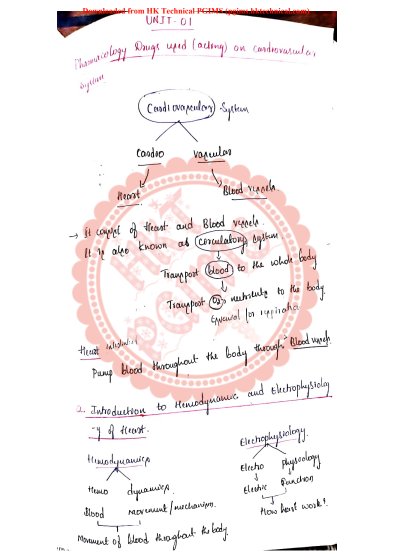 Downloaded from HK Technical PGIMS (pgims.hktechnical.com)
UNIT-01
Pharmacology Drugs used (acting) on cardiovascular
system.
Cardiovascular System
Cardio vascular
Heart Blood vessels.
→ It consist of Heart and Blood vessels.
It is also known as circulatory system
Transport blood to the whole body
Transport O₂, nutrients to the body
for respiration
Heart
Pump blood throughout the body through Blood vessels
2. Introduction to Hemodynamic and Electrophysiolog
-y of Heart.
Electrophysiology.
Hemodynamics
Electro physiology
Hemo dynamics.
Electric function
Blood movement/mechanism.
How heart work?
Movement of blood throughout the body.